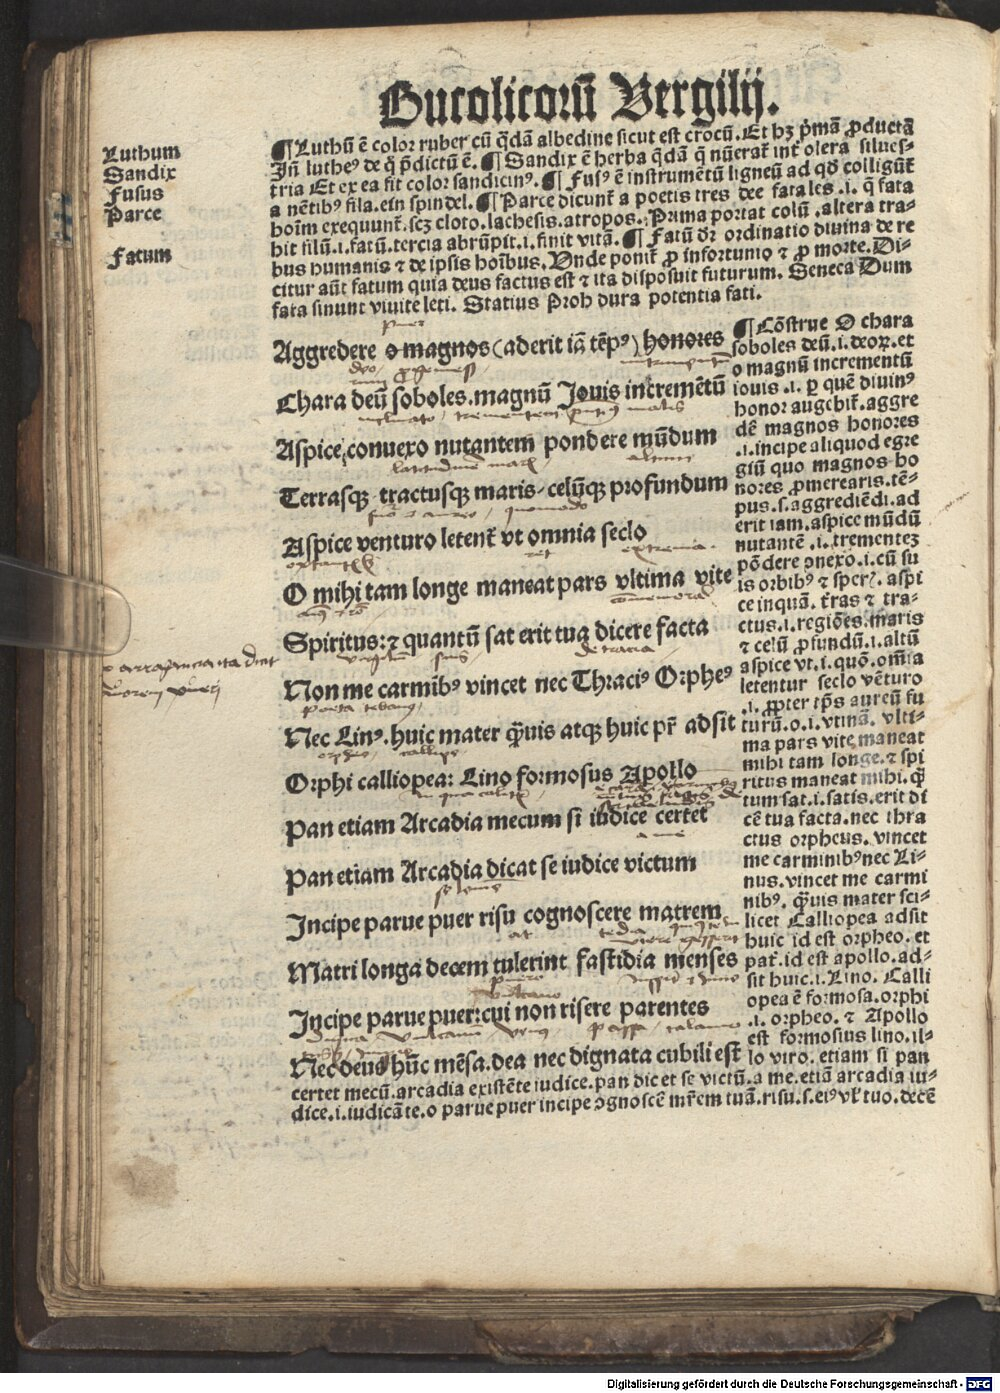 Bucolicorū Vergilij.
Luthum
Sandix
Fusus
Parce
Fatum
¶ Luthū ē color ruber cū q̄dā albedine sicut est crocū. Et hꝫ p̄mā ꝓductā
Jn̄ lutheꝰ de q̄ p̄dictū ē. ¶ Sandix ē herba q̄dā q̄ nūerat̄ int̄ olera silues⸗
tria Et ex ea fit color sandicinꝰ. ¶ Fusꝰ ē instrumētū ligneū ad qd̄ colligūt̄
a nētibꝰ fila. ein spindel. ¶ Parce dicunt̄ a poetis tres dee fatales .i. q̄ fata
hoīm exequunt̄. scꝫ cloto. lachesis. atropos. Prima portat colū. altera tra⸗
hit filū .i. fatū. tercia abrūpit .i. finit vitā. ¶ Fatū dr̄ ordinatio diuina de re
bus humanis ⁊ de ipsis hoībus. Vnde ponit̄ ꝓ infortunio ⁊ ꝓ morte. Di⸗
citur aūt fatum quia deus factus est ⁊ ita disposuit futurum. Seneca Dum
fata sinunt viuite leti. Statius Proh dura potentia fati.
Aggredere o magnos (aderit iā tēpꝰ) honores
Chara deū soboles. magnū Jouis incremētū
Aspice conuexo nutantem pondere mūdum
Terrasqꝫ tractusqꝫ maris celūqꝫ profundum
Aspice venturo letent̄ vt omnia seclo
O mihi tam longe maneat pars vltima vite
Spiritus: ⁊ quantū sat erit tua dicere facta
Non me carmibꝰ vincet nec Thraciꝰ Orpheꝰ
Nec Linꝰ. huic mater q̄uis atqꝫ huic pr̄ adsit
Orphi calliopea: Lino formosus Apollo
Pan etiam Arcadia mecum si iudice certet
Pan etiam Arcadia dicat se iudice victum
Incipe parue puer risu cognoscere matrem
Matri longa decem tulerint fastidia menses
Incipe parue puer: cui non risere parentes
Nec deus hūc mēsa. dea nec dignata cubili est
¶ Cōstrue O chara
soboles deū .i. deoꝝ. et
o magnū incrementū
iouis .i. ꝑ quē diuinꝰ
honor augebit̄. aggre
dē magnos honores
.i. incipe aliquod egre
giū quo magnos ho
nores ꝓmerearis. tē⸗
pus .s. aggrediēdi. ad
erit iam. aspice mūdū
nutantē .i. trementeꝫ
pōdere ꝯnexo .i. cū su
is orbibꝰ ⁊ sper̄. aspi
ce inquā. t̄ras ⁊ tra⸗
ctus .i. regiōes. maris
⁊ celū ꝓfundū .i. altū
aspice vt .i. quō. om̄ia
letentur seclo vēturo
.i. ꝓpter tp̄s aureū fu
turū. o .i. vtinā. vlti⸗
ma pars vite maneat
mihi tam longe. ⁊ spi
ritus maneat mihi. q̄
tum sat .i. satis. erit di
cē tua facta. nec thra
ctus orpheus. vincet
me carminibꝰ nec Li⸗
nus. vincet me carmi
nibꝰ. q̄uis mater sci⸗
licet Calliopea adsit
huic id est orpheo. et
pat̄. id est apollo. ad⸗
sit huic .i. Lino. Calli
opea ē formosa. orphi
.i. orpheo. ⁊ Apollo
est formosius lino. il⸗
lo viro. etiam si pan
certet mecū. arcadia existēte iudice. pan dicet se victū. a me. etiā arcadia iu⸗
dice .i. iudicāte. o parue puer incipe ꝯgnoscē mr̄em tuā. risu .s. eiꝰ vl̄ tuo. decē
Digitalisierung gefördert durch die Deutsche Forschungsgemeinschaft - DFG